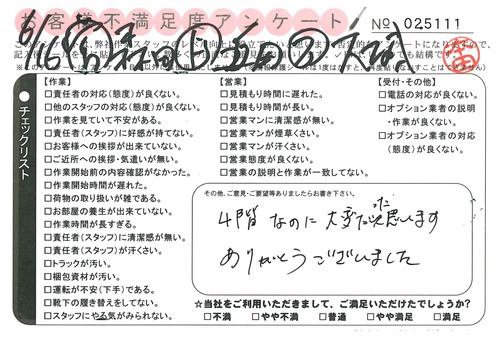 お客様不満足度アンケート
No 025111
【作業】
□責任者の対応(態度)が良くない。
□他のスタッフの対応(態度)が良くない。
□作業を見ていて不安がある。
□責任者(スタッフ)に好感が持てない。
□お客様への挨拶が出来ていない。
□ご近所への挨拶・気遣いが無い。
□作業開始前の内容確認がなかった。
□作業開始時間が遅れた。
□荷物の取り扱いが雑である。
□お部屋の養生が出来ていない。
□作業時間が長すぎる。
□責任者(スタッフ)に清潔感が無い。
□責任者(スタッフ)が汗くさい。
□トラックが汚い。
□梱包資材が汚い。
□運転が不安(下手)である。
□靴下の履き替えをしてない。
□スタッフにやる気がみられない。
【営業】
□見積もり時間に遅れた。
□見積もり時間が長い。
□営業マンに清潔感が無い。
□営業マンが煙草くさい。
□営業マンが汗くさい。
□営業態度が良くない。
□営業の説明と作業が一致してない。
【受付・その他】
□電話の対応が良くない。
□オプション業者の説明
・作業が良くない。
□オプション業者の対応
(態度)が良くない。
チェックリスト
その他、ご意見・ご要望等ありましたらお書き下さい。
4階なのに大変だったと思います
ありがとうございました
★当社をご利用いただきまして、ご満足いただけたでしょうか?
□不満 □やや不満 □普通 □やや満足 □満足